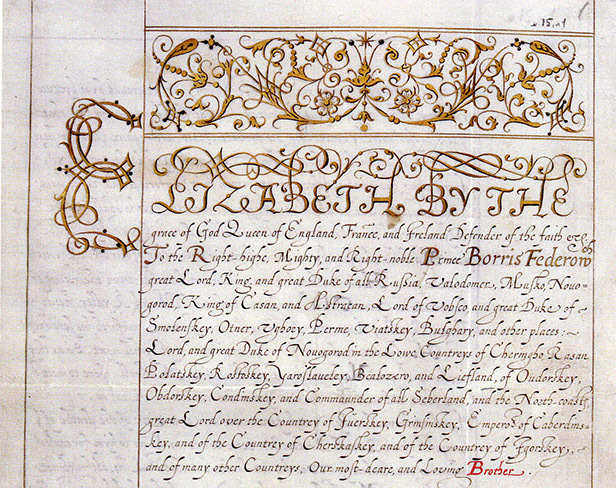 15, 1
ELIZABETH BY THE
grace of God Queen of England, France, and Ireland Defender of the faith &c.
To the Right-highe, Mighty, and Right-noble Prince Borris Federow
great Lord, King, and great Duke of all Russia, Valodomer, Musko, Novo-
gorod, King of Casan, and Astratan, Lord of Vobsco and great Duke of
Smolenskey, Otner, Vghory, Perme, Viatskey, Bulghary, and other places:
Lord, and great Duke of Novogorod in the Lowe Countreys of Chernigho, Rasan
Polatskey, Rostoskey, Yaroslaveley, Bealozero, and Liefland, of Oudorskey,
Obdorskey, Condinskey, and Commaunder of all Seberland, and the North-coasts,
great Lord over the Countrey of Iverskey, Grinsinskey, Emperor of Caberdins-
key, and of the Countrey of Cherskaskey, and of the Countrey of Igorskey,
and of many other Countreys, Our most-deare, and Loving Brother.